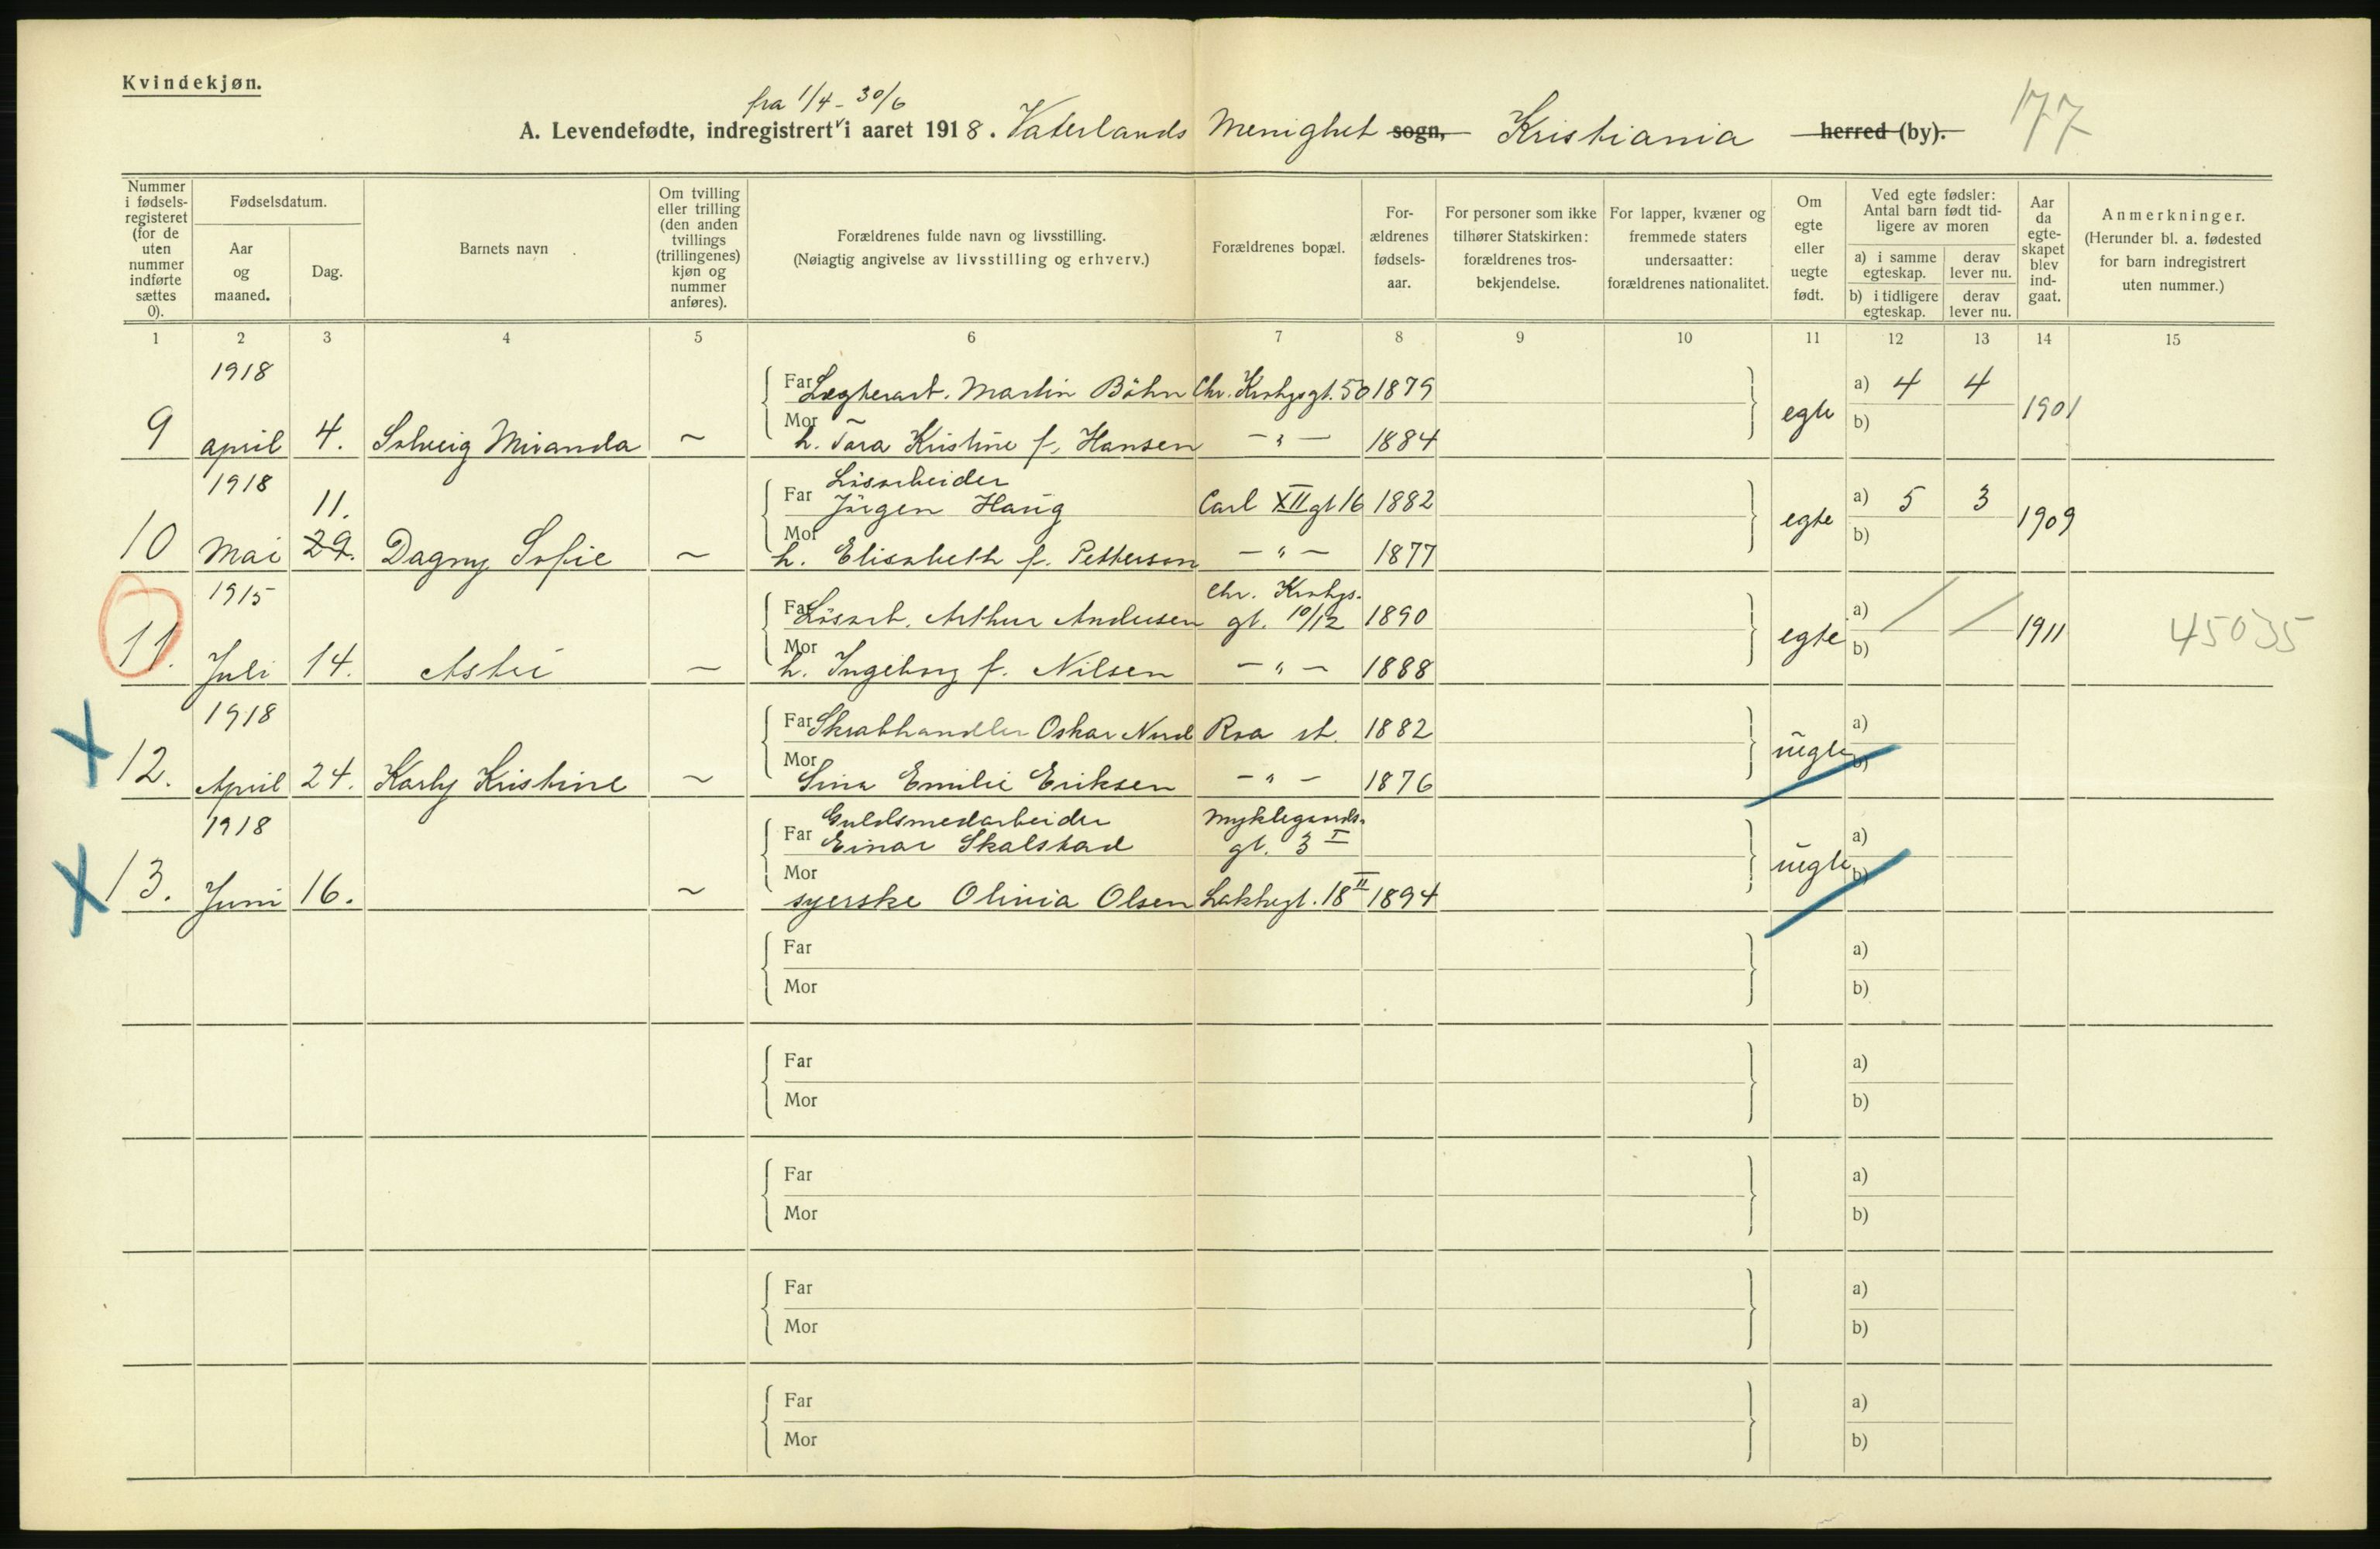 Kvindekjøn.
fra 1/4 - 30/6
A. Levendefødte, indregistrert i aaret 1918. Vaterlands Menighet sogn, Kristiania herred (by). 177
Nummer i fødsels-registeret (for de uten nummer indførte sættes 0).
Fødselsdatum.
Aar og maaned.
Dag.
Barnets navn
Om tvilling eller trilling (den anden tvillings (trillingenes) kjøn og nummer anføres).
Forældrenes fulde navn og livsstilling.
(Nøiagtig angivelse av livsstilling og erhverv.)
Forældrenes bopæl.
For-ældrenes fødsels-aar.
For personer som ikke tilhører Statskirken: forældrenes tros-bekjendelse.
For lapper, kvæner og fremmede staters undersaatter: forældrenes nationalitet.
Om egte eller uegte født.
Ved egte fødsler: Antal barn født tid-ligere av moren
a) i samme egteskap.
derav lever nu.
b) i tidligere egteskap.
derav lever nu.
Aar da egte-skapet blev ind-gaat.
Anmerkninger.
(Herunder bl. a. fødested for barn indregistrert uten nummer.)
1 2 3 4 5 6 7 8 9 10 11 12 13 14 15
1918
Far Martin Böhn Chr. Krohgsgt. 50 1879 a) 4 4
9 april 4. Solveig Miranda ~ Mor h. Tara Kristine f. Hansen - " - 1884 egte b) 1901
1918 Løsarbeider
11. Far Jörgen Haug Carl XII gt 16 1882 a) 5 3
10 Mai 29. Dagny Sofie ~ Mor h. Elisabeth f. Petterson - " - 1877 egte b) 1909
1915 Chr. Krohgs-
Far Løsarb. Arthur Andersen gt. 10/12 1890 a) / /
11. Juli 14. ~ Mor h. Ingeborg f. Nilsen - " - 1888 egte b) 1911 45035
1918
Far Skrabhandler Oskar Nord Roa st. 1882 a)
12. April 24. Karly Kristine ~ Mor Sina Emilie Eriksen - " - 1876 uegte b)
1918 Guldsmedarbeider
Far Einar Skalstad gt. 3 I a)
13. Juni 16. ~ Mor syerske Olivia Olsen Lakkegt. 18 II 1894 uegte b)
Far a)
Mor b)
Far a)
Mor b)
Far a)
Mor b)
Far a)
Mor b)
Far a)
Mor b)